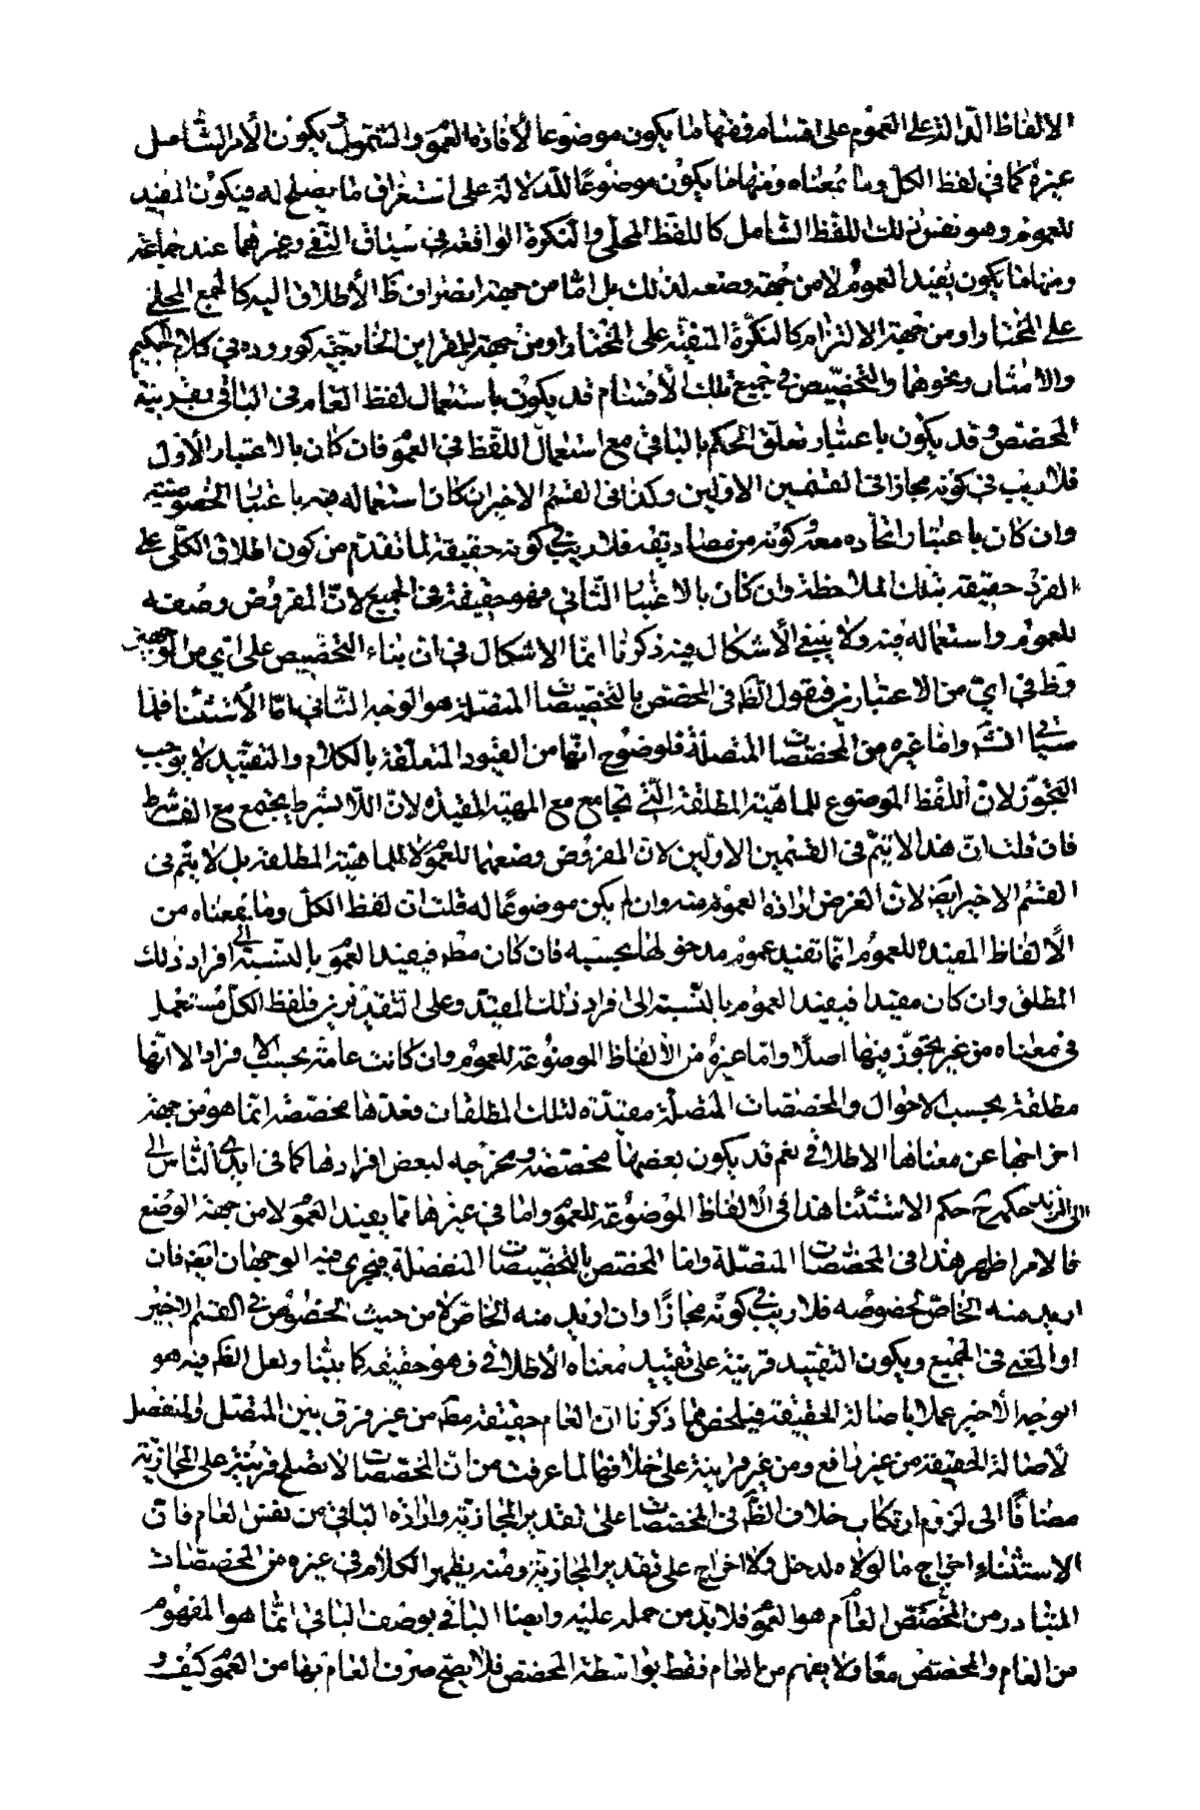 الالفاظ الدالة على العموم على اقسام فمنها ما يكون موضوعا لافادة العموم والشمول ويكون الامر الشامل
غيره كما في لفظ الكل وما بمعناه ومنها ما يكون موضوعا للدلالة على استغراق ما يصلح له فيكون المفيد
للعموم هو نفس ذلك اللفظ الشامل كاللفظ المحلى والنكرة الواقعة في سياق النفي وغيرهما عند جماعة
ومنها ما يكون يفيد العموم لا من جهة وضعه لذلك بل اما من جهة انصراف ظ الاطلاق اليه كالجمع المحلى
على المختار او من جهة الالتزام كالنكرة المنفية على المختار او من جهة القراين الخارجية كوروده في كلام الحكيم
والامتنان ونحوهما والتخصيص في جميع تلك الاقسام قد يكون باستعمال لفظ العام في الباقي بقرينة
المخصص وقد يكون باعتبار تعلق الحكم بالباقي مع استعمال اللفظ في العموم فان كان بالاعتبار الاول
فلا ريب في كونه مجازا في القسمين الاولين وكذا في القسم الاخير ان كان استعماله فيه باعتبار الخصوصية
وان كان باعتبار اتحاده معه وكونه من مصاديقه فلا ريب في كونه حقيقة لما تقدم من كون اطلاق الكلي على
الفرد حقيقة بتلك الملاحظة وان كان بالاعتبار الثاني فهو حقيقة في الجميع لان المفروض وضعه
للعموم واستعماله فيه ولا ينبغي الاشكال فيه ذكرنا انما الاشكال في ان بناء التخصيص على اي من الوجهين
وظ في اي من الاعتبارين فيقول الظ في المخصص بالتخصيصات المتصلة هو الوجه الثاني اما الاستثناء فلما
سياتي انش واما غيره من المخصصات المتصلة فلوضوح انها من القيود المتعلقة بالكلام والتقييد لا يوجب
التجوز لان اللفظ الموضوع للماهية المطلقة التي تجامع مع المهية المقيدة لان اللا بشرط يجتمع مع الف شرط
فان قلت ان هذا لا يتم في القسمين الاولين لان المفروض وضعهما للعموم لا للماهية المطلقة بل لا يتم في
القسم الاخير ايض لان الغرض ارادة العموم منه وان لم يكن موضوعا له قلت ان لفظ الكل وما بمعناه من
الالفاظ المفيدة للعموم انما تفيد عموم مدخولها بحسبه فان كان مط فيفيد العموم بالنسبة الى افراد ذلك
المطلق وان كان مقيدا فيفيد العموم بالنسبة الى افراد ذلك المقيد وعلى التقديرين فلفظ الكل مستعمل
في معناه من غير تجوز فيها اصلا واما غيره من الالفاظ الموضوعة للعموم وان كانت عامة بحسب الافراد الا انها
مطلقة بحسب الاحوال والمخصصات المتصلة مقيدة لتلك المطلقات فعدها مخصصة انما هو من جهة
اخراجها عن معناها الاطلاقي نعم قد يكون بعضها مخصصة ومخرجة لبعض افرادها كما في
حكمه ح حكم الاستثناء هذا في الالفاظ الموضوعة للعموم واما في غيرها مما يفيد العموم لا من جهة الوضع
فالامر اظهر هذا في المخصصات المتصلة واما المخصص بالتخصيصات المنفصلة فيجري فيه الوجهان ايض فان
اريد منه الخاص لخصوصه فلا ريب في كونه مجازا وان اريد منه الخاص لا من حيث الخصوص في القسم الاخير
او المعنى في الجميع ويكون التقييد قرينة على تقييد معناه الاطلاقي فهو حقيقة كما بينا ولعل الظ فيه هو
الوجه الاخير عملا باصالة الحقيقة فيلخص مما ذكرنا ان العام حقيقة مط من غير فرق بين المتصل والمنفصل
لاصالة الحقيقة من غير دافع ومن غير قرينة على خلافها لما عرفت من ان المخصصات لا تصلح قرينة على المجازية
مضافا الى لزوم ارتكاب خلاف الظ في المخصصات على تقدير المجازية وارادة الباقي من نفس العام فان
الاستثناء اخراج ما لولاه لدخل ولا اخراج على تقدير المجازية ومنه يظهر الكلام في غيره من المخصصات
المتبادر من المخصص العام هو العموم فلا بد من حمله عليه وايضا الباقي بوصف الباقي انما هو المفهوم
من العام والمخصص معا ولا يفهم من العام فقط بواسطة المخصص فلا يصح صرف العام بها من العموم كيف و